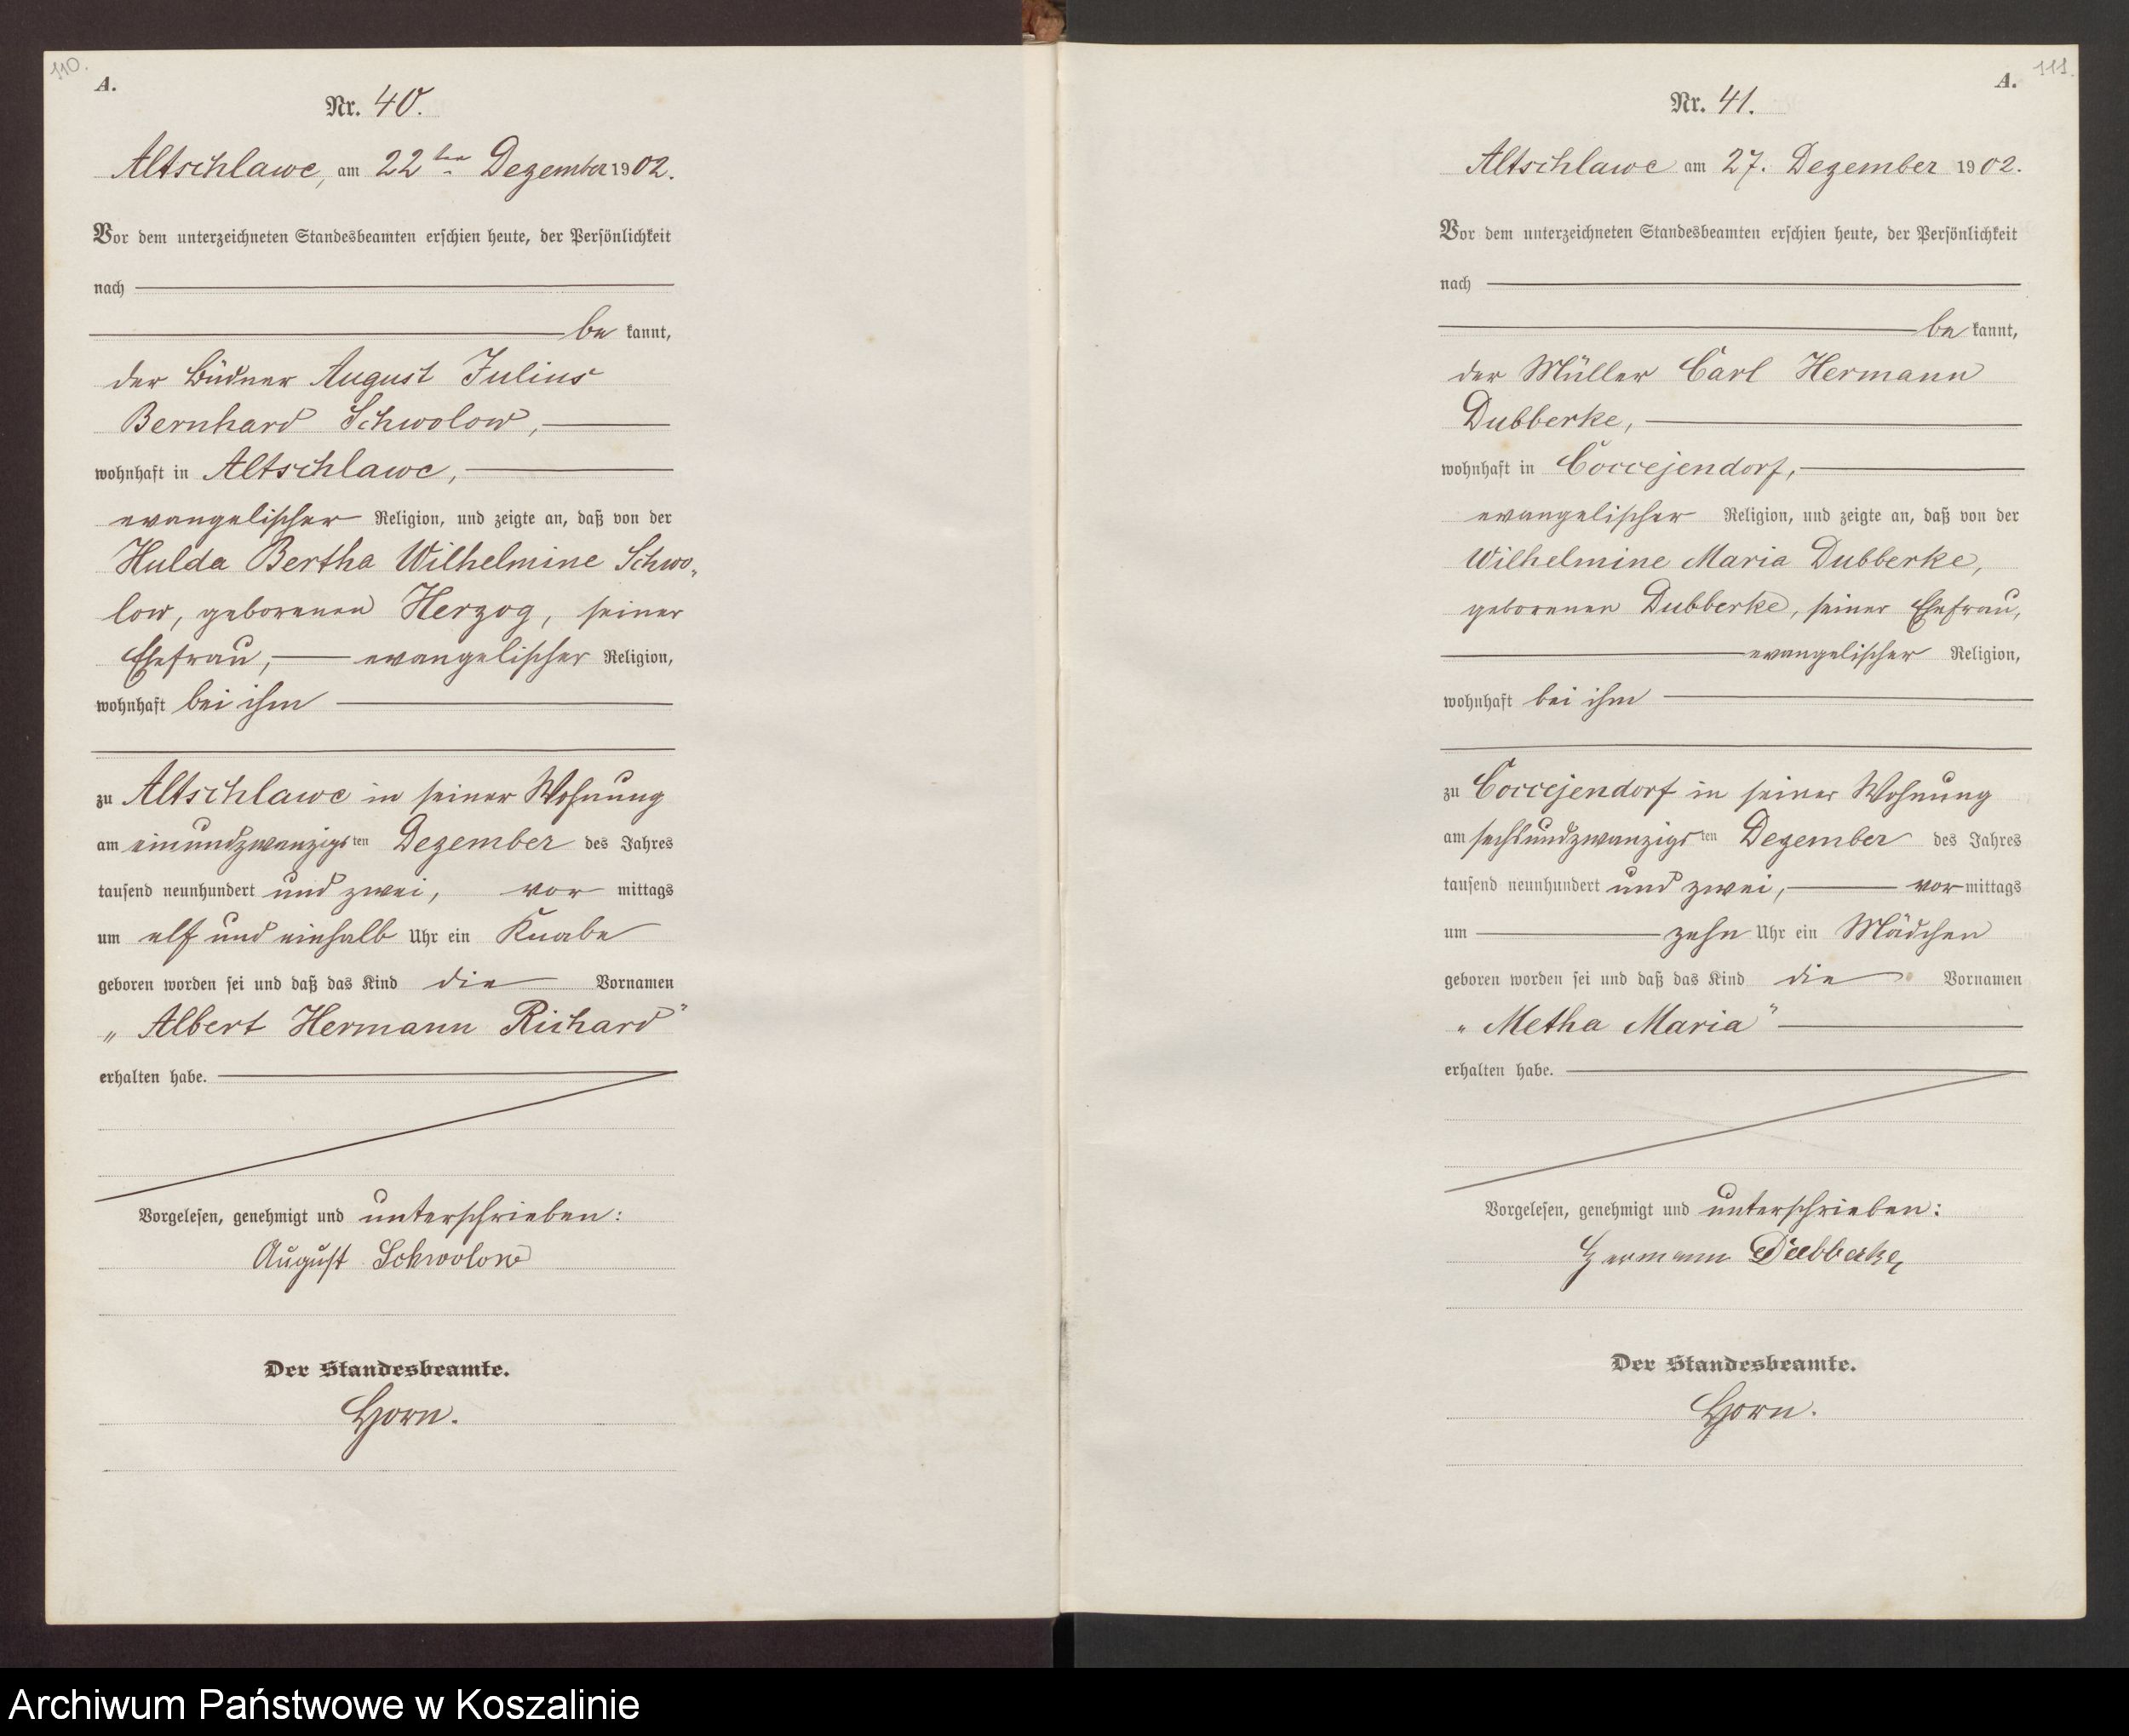 110.
A.
Nr. 40.
Altschlawe, am 22ten Dezember 1902.
Vor dem unterzeichneten Standesbeamten erschien heute, der Persönlichkeit
nach
be kannt,
der Büdner August Julius
Bernhard Schwolow,
wohnhaft in Altschlawe,
evangelischer Religion, und zeigte an, daß von der
Hulda Bertha Wilhelmine Schwo„
low, geborenen Herzog, seiner
Ehefrau, evangelischer Religion,
wohnhaft bei ihm
zu Altschlawe in seiner Wohnung
am einundzwanzigsten Dezember des Jahres
tausend neunhundert und zwei, vor mittags
um elf und einhalb Uhr ein Knabe
geboren worden sei und daß das Kind die Vornamen
„Albert Hermann Richard"
erhalten habe.
Vorgelesen, genehmigt und unterschrieben:
August Schwolow
Der Standesbeamte.
Horn.
111.
A.
Nr. 41.
Altschlawe am 27. Dezember 1902.
Vor dem unterzeichneten Standesbeamten erschien heute, der Persönlichkeit
nach
be kannt,
der Müller Carl Hermann
Dubberke,
wohnhaft in Coccejendorf,
evangelischer Religion, und zeigte an, daß von der
Wilhelmine Maria Dubberke,
geborenen Dubberke, seiner Ehefrau,
evangelischer Religion,
wohnhaft bei ihm
zu Coccejendorf in seiner Wohnung
am sechsundzwanzigsten Dezember des Jahres
tausend neunhundert und zwei, vor mittags
um zehn Uhr ein Mädchen
geboren worden sei und daß das Kind die Vornamen
„Metha Maria"
erhalten habe.
Vorgelesen, genehmigt und unterschrieben:
Hermann Dubberke
Der Standesbeamte.
Horn.
Archiwum Państwowe w Koszalinie